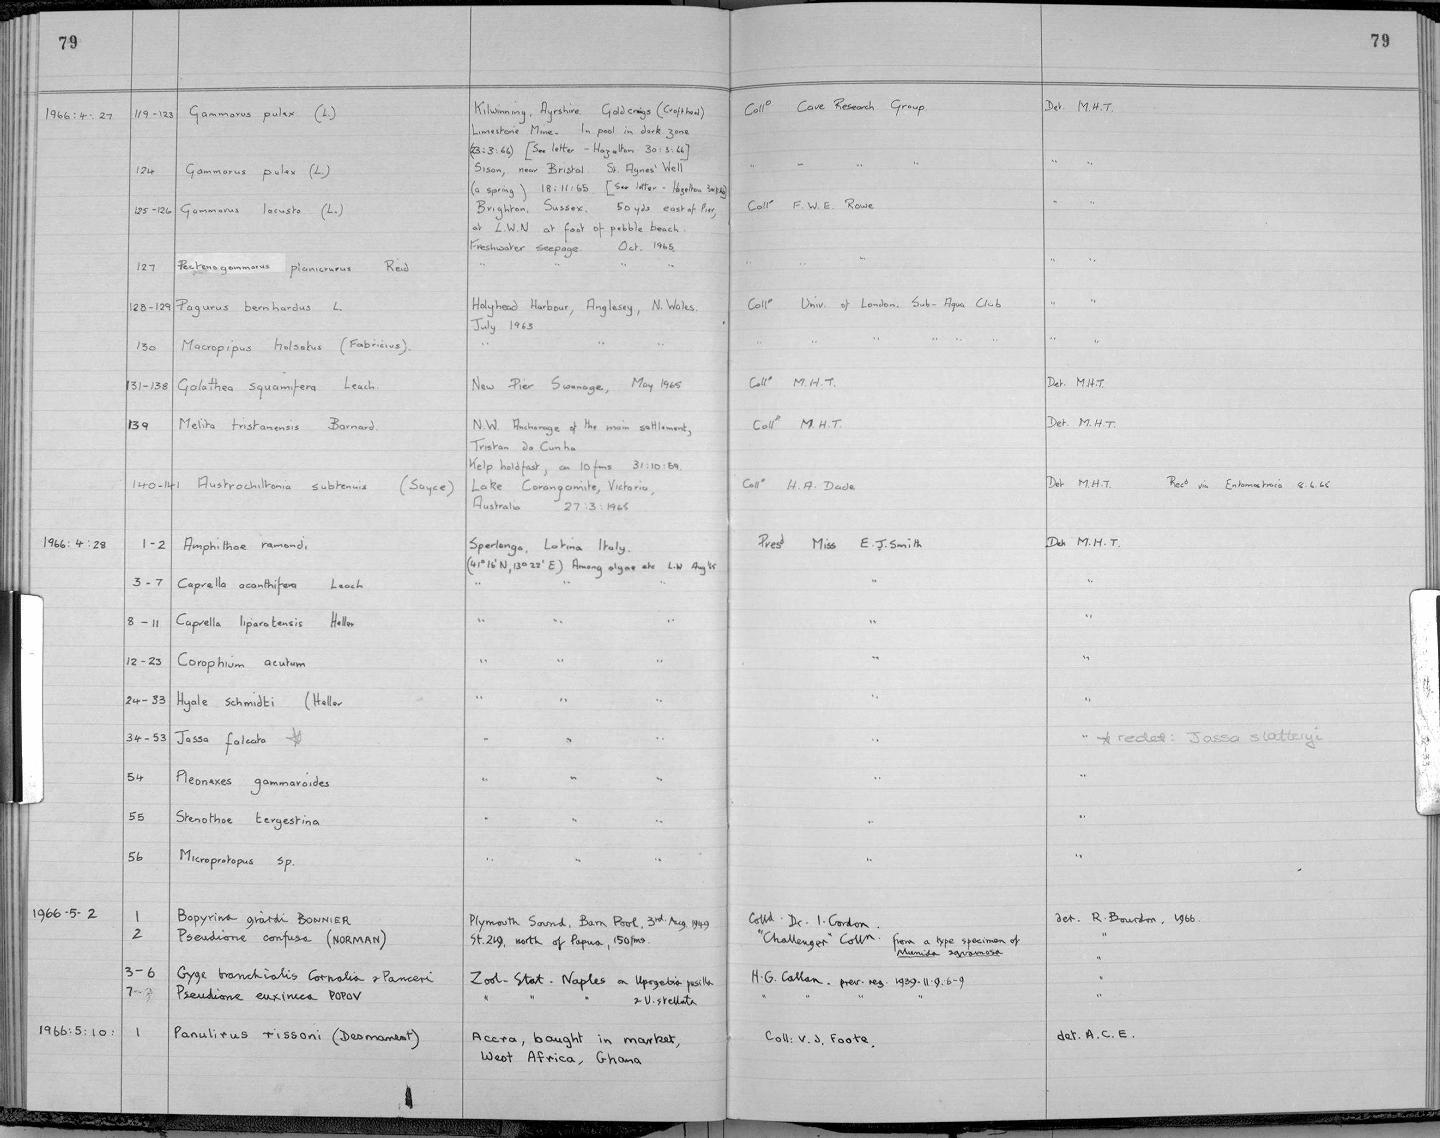 79 79
1966:4:27 119-123 Gammarus pulex (L.) Kilwinning, Ayrshire. Goldcraigs (Crofthead) Collᵈ Cave Research Group. Det. M.H.T.
Limestone Mine. In pool in dark zone
(23:3:66) [See letter - Hazelton 30:3:66]
124 Gammarus pulex (L.) Sison, near Bristol. St. Agnes' Well " " " " " "
(a spring) 18:11:65 [See letter - Hazelton
125-126 Gammarus locusta (L.) Brighton, Sussex. 50 yds east of Pier, Collᵈ F.W.E. Rowe " "
at L.W.N at foot of pebble beach.
Freshwater seepage. Oct. 1965
127 Pectenogammarus planicrurus Reid " " " " " " " " "
128-129 Pagurus bernhardus L. Holyhead Harbour, Anglesey, N. Wales. Collᵈ Univ. of London. Sub-Aqua Club " "
July 1963
130 Macropipus holsatus (Fabricius). " " " " " " " " " " "
131-138 Galathea squamifera Leach. New Pier Swanage, May 1965 Collᵈ M.H.T. Det. M.H.T.
139 Melita tristanensis Barnard. N.W. Anchorage of the main settlement, Collᵈ M.H.T. Det. M.H.T.
Tristan da Cunha
Kelp holdfast, on 10 fms 31:10:59.
140-141 Austrochiltonia subtenuis (Sayce) Lake Corangamite, Victoria, Collᵈ H.A. Dade Det M.H.T. Recᵈ via Entomostraca 8.6.65
Australia 27:3:1965
1966:4:28 1-2 Amphithoe ramondi Sperlonga, Latina Italy. Presᵈ Miss E.J. Smith Det M.H.T.
(41°16'N, 13°22'E) Among algae etc L.W Aug '65
3-7 Caprella acanthifera Leach " " " " "
8-11 Caprella liparotensis Haller " " " " "
12-23 Corophium acutum " " " " "
24-33 Hyale schmidti (Heller " " " " "
34-53 Jassa falcata ☆ " " " " " ☆ redet: Jassa slatteryi
54 Pleonexes gammaroides " " " " "
55 Stenothoe tergestina " " " " "
56 Microprotopus sp. " " " " "
1966-5-2 1 Bopyrina giardi BONNIER Plymouth Sound, Barn Pool, 3rd. Aug. 1949 Collᵈ. Dr. I. Gordon. det. R. Bourdon, 1966.
2 Pseudione confusa (NORMAN) St. 219, north of Papua, 150fms. "Challenger" Colln. from a type specimen of "
Munida squamosa "
3-6 Gyge branchialis Cornalia & Panceri Zool. Stat. Naples on Upogebia pusilla H.G. Callan. prev. reg. 1939.11.9.6-9 "
7- Pseudione euxinica POPOV " " " & U. stellata " " " " "
1966:5:10: 1 Panulirus rissoni (Desmarest) Accra, bought in market, Coll: V.J. Foote. det. A.C.E.
West Africa, Ghana